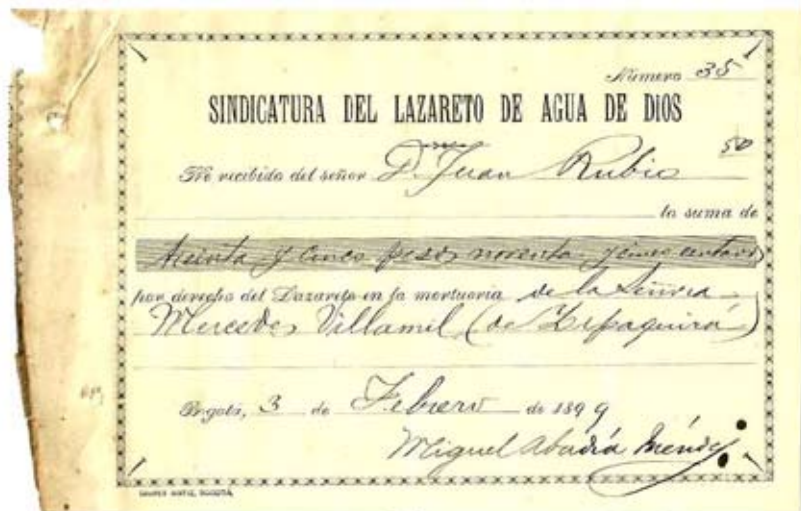 Número 35
SINDICATURA DEL LAZARETO DE AGUA DE DIOS
50
He recibido del señor D. Juan Rubio
la suma de
treinta y cinco pesos noventa y cinco centavos
por derecho del Lazareto en la mortuoria de la Señora
Mercedes Villamil (de Zipaquirá)
Bogotá, 3 de Febrero de 1899
Miguel Abadía Méndez